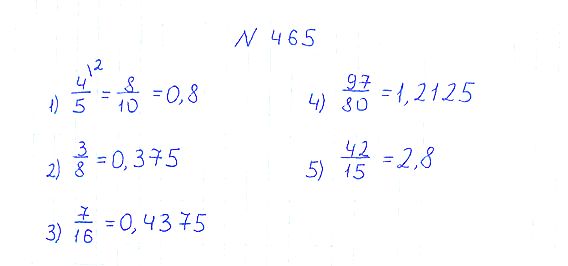 N 465
1) 4\2/5 = 8/10 = 0,8
2) 3/8 = 0,375
3) 7/16 = 0,4375
4) 97/80 = 1,2125
5) 42/15 = 2,8